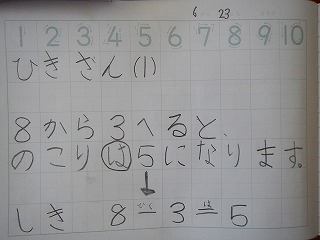 6 23
1 2 3 4 5 6 7 8 9 10
ひきざん(1)
8から3へると、
のこりは5になります。
しき 8－3＝5
ひく は